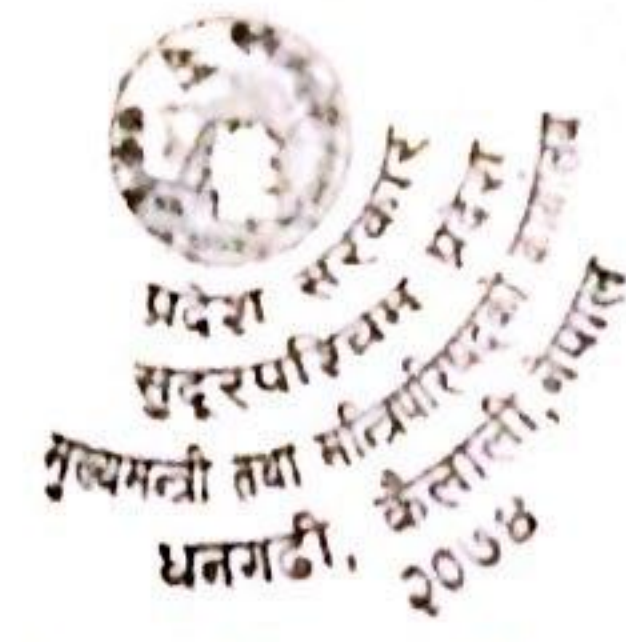 प्रदेश सरकार
सुदूरपश्चिम प्रदेश
मुख्यमन्त्री तथा मन्त्रिपरिषद्को कार्यालय
धनगढी, कैलाली, नेपाल
२०७४